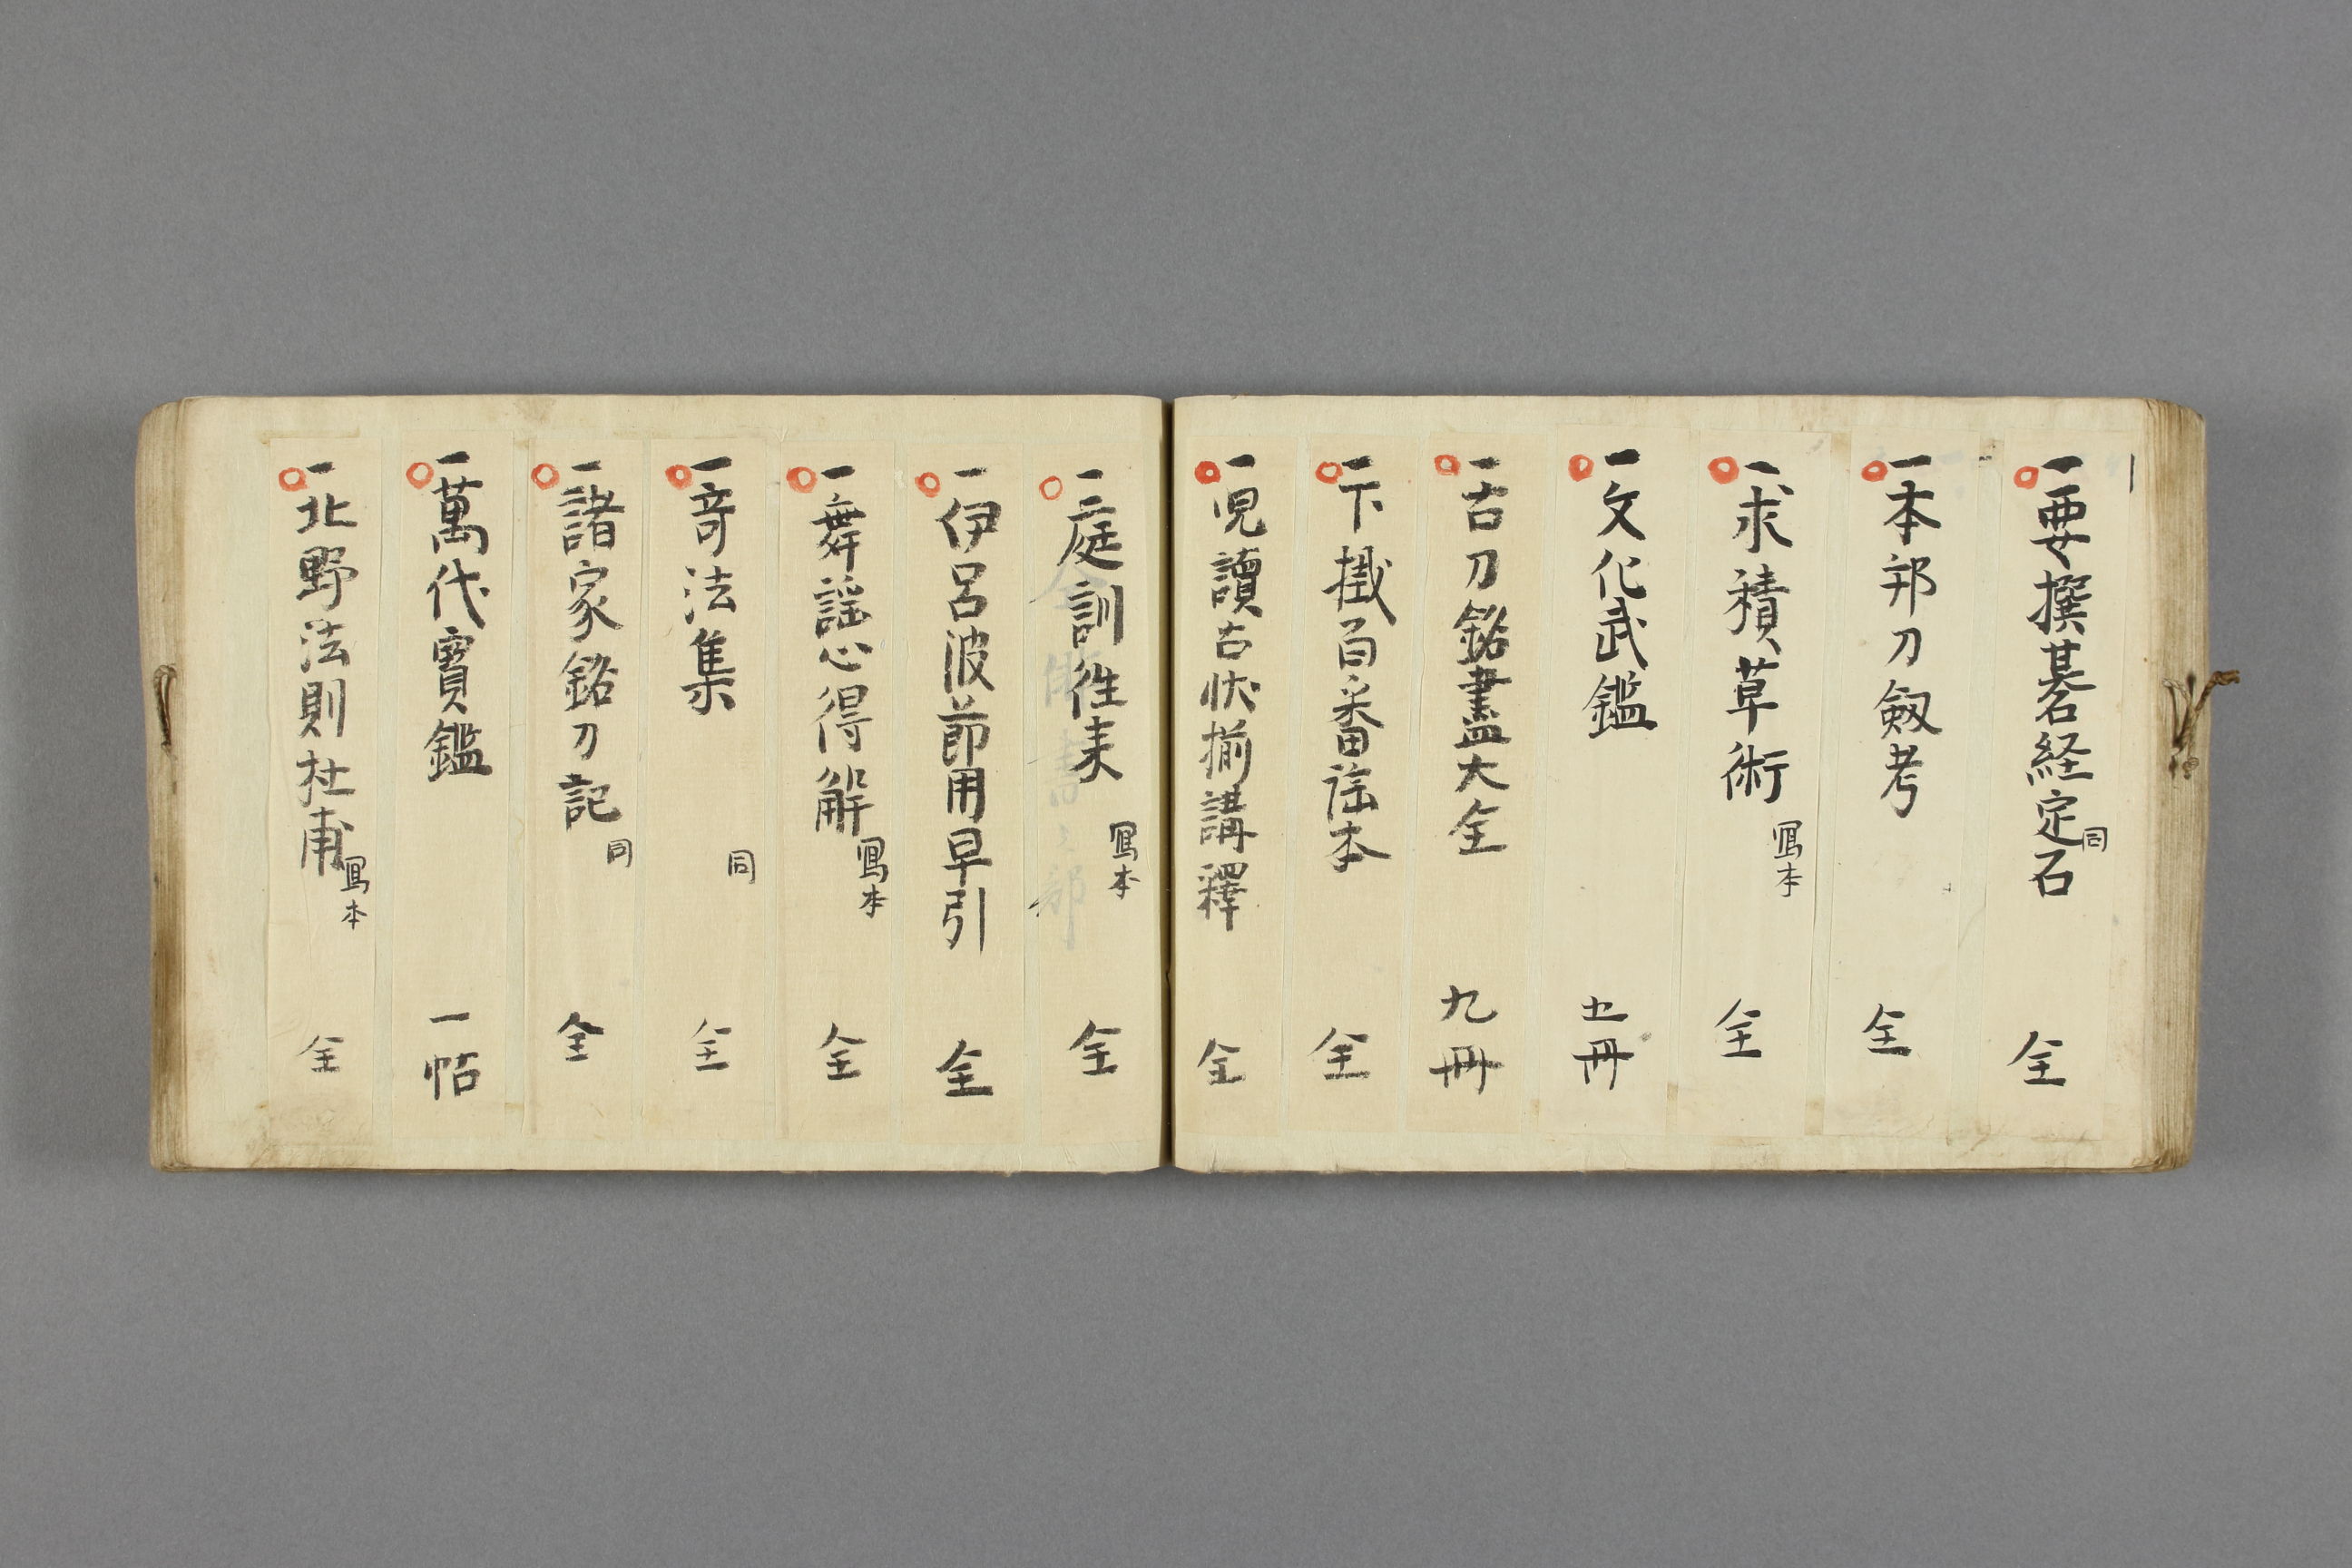 一要撰碁経定石 同 全
一本邦刀劔考 全
一求積草術 寫本 全
一文化武鑑 五冊
一古刀銘盡大全 九冊
一下掛百番謡本 全
一児讀古状揃講釋 全
一庭訓徃来 寫本 全
一伊呂波節用早引 全
一舞謡心得解 寫本 全
一竒法集 同 全
一諸家銘刀記 同 全
一萬代寳鑑 一帖
一北野法則杜甫 寫本 全